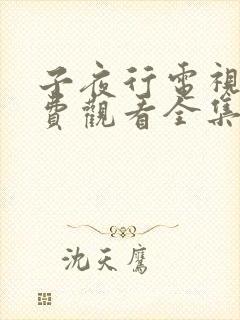 子夜行電視
費觀看全集
沈天鷹